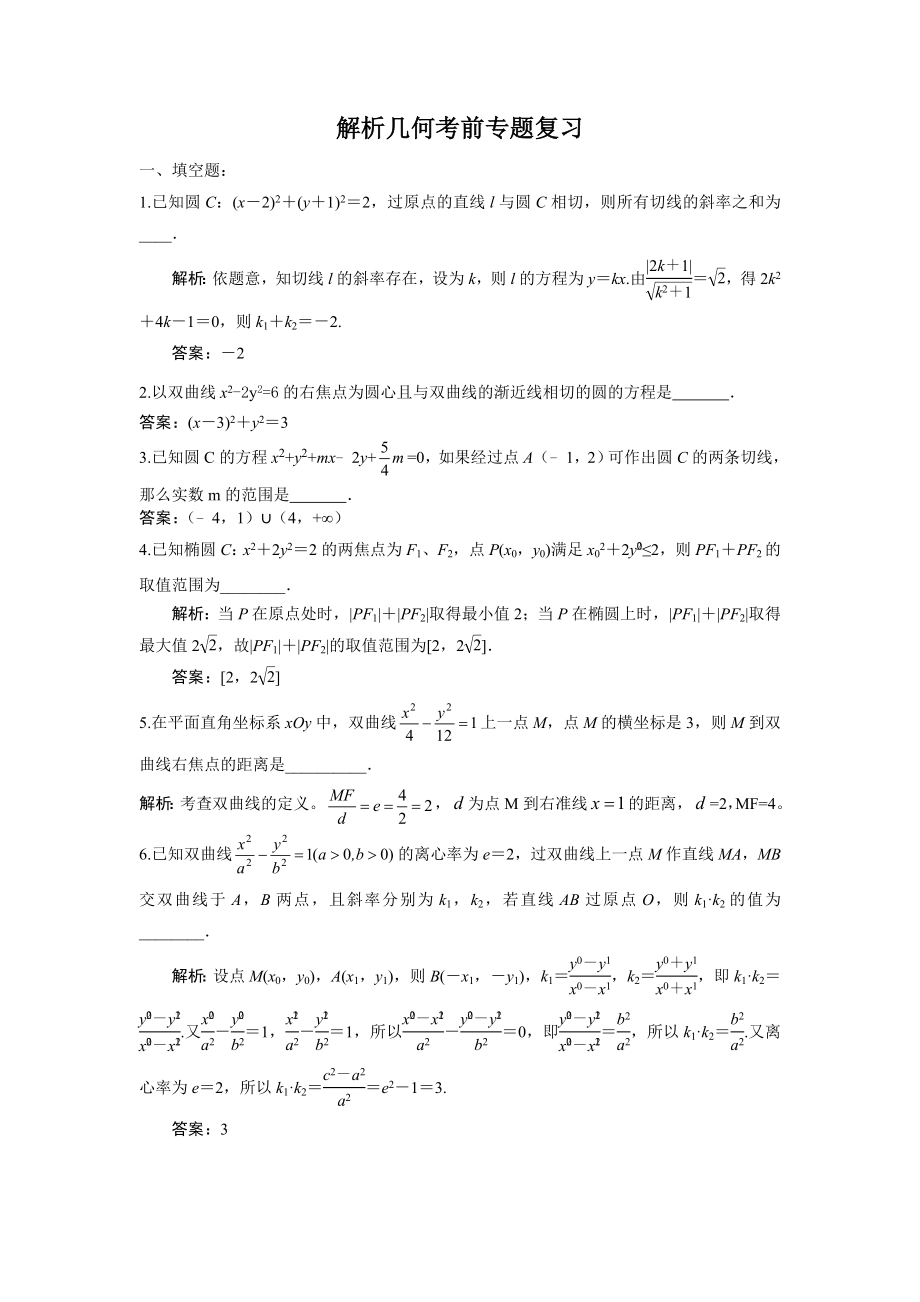 解析几何考前专题复习
一、填空题：
1.已知圆 C：(x－2)²＋(y＋1)²＝2，过原点的直线 l 与圆 C 相切，则所有切线的斜率之和为
____．
解析：依题意，知切线 l 的斜率存在，设为 k，则 l 的方程为 y＝kx.由|2k＋1|/√(k²＋1)＝√2，得 2k²
＋4k－1＝0，则 k₁＋k₂＝－2.
答案：－2
2.以双曲线 x²-2y²=6 的右焦点为圆心且与双曲线的渐近线相切的圆的方程是_______．
答案：(x－3)²＋y²＝3
3.已知圆 C 的方程 x²+y²+mx– 2y+5/4 m =0，如果经过点 A（– 1，2）可作出圆 C 的两条切线，
那么实数 m 的范围是_______．
答案：（– 4，1）∪（4，+∞）
4.已知椭圆 C：x²＋2y²＝2 的两焦点为 F₁、F₂，点 P(x₀，y₀)满足 x₀²＋2y₀²≤2，则 PF₁＋PF₂ 的
取值范围为________．
解析：当 P 在原点处时，|PF₁|＋|PF₂|取得最小值 2；当 P 在椭圆上时，|PF₁|＋|PF₂|取得
最大值 2√2，故|PF₁|＋|PF₂|的取值范围为[2，2√2]．
答案：[2，2√2]
5.在平面直角坐标系 xOy 中，双曲线 x²/4 − y²/12 = 1 上一点 M，点 M 的横坐标是 3，则 M 到双
曲线右焦点的距离是__________．
解析：考查双曲线的定义。MF/d = e = 4/2 = 2，d 为点 M 到右准线 x = 1 的距离，d =2，MF=4。
6.已知双曲线 x²/a² − y²/b² = 1(a > 0,b > 0) 的离心率为 e＝2，过双曲线上一点 M 作直线 MA，MB
交双曲线于 A，B 两点，且斜率分别为 k₁，k₂，若直线 AB 过原点 O，则 k₁·k₂ 的值为
________．
解析：设点 M(x₀，y₀)，A(x₁，y₁)，则 B(－x₁，－y₁)，k₁＝(y0－y1)/(x0－x1)，k₂＝(y0＋y1)/(x0＋x1)，即 k₁·k₂＝
(y₀²－y₁²)/(x₀²－x₁²).又 x₀²/a²－y₀²/b²＝1，x₁²/a²－y₁²/b²＝1，所以(x₀²－x₁²)/a²－(y₀²－y₁²)/b²＝0，即(y₀²－y₁²)/(x₀²－x₁²)＝b²/a²，所以 k₁·k₂＝b²/a².又离
心率为 e＝2，所以 k₁·k₂＝(c²－a²)/a²＝e²－1＝3.
答案：3